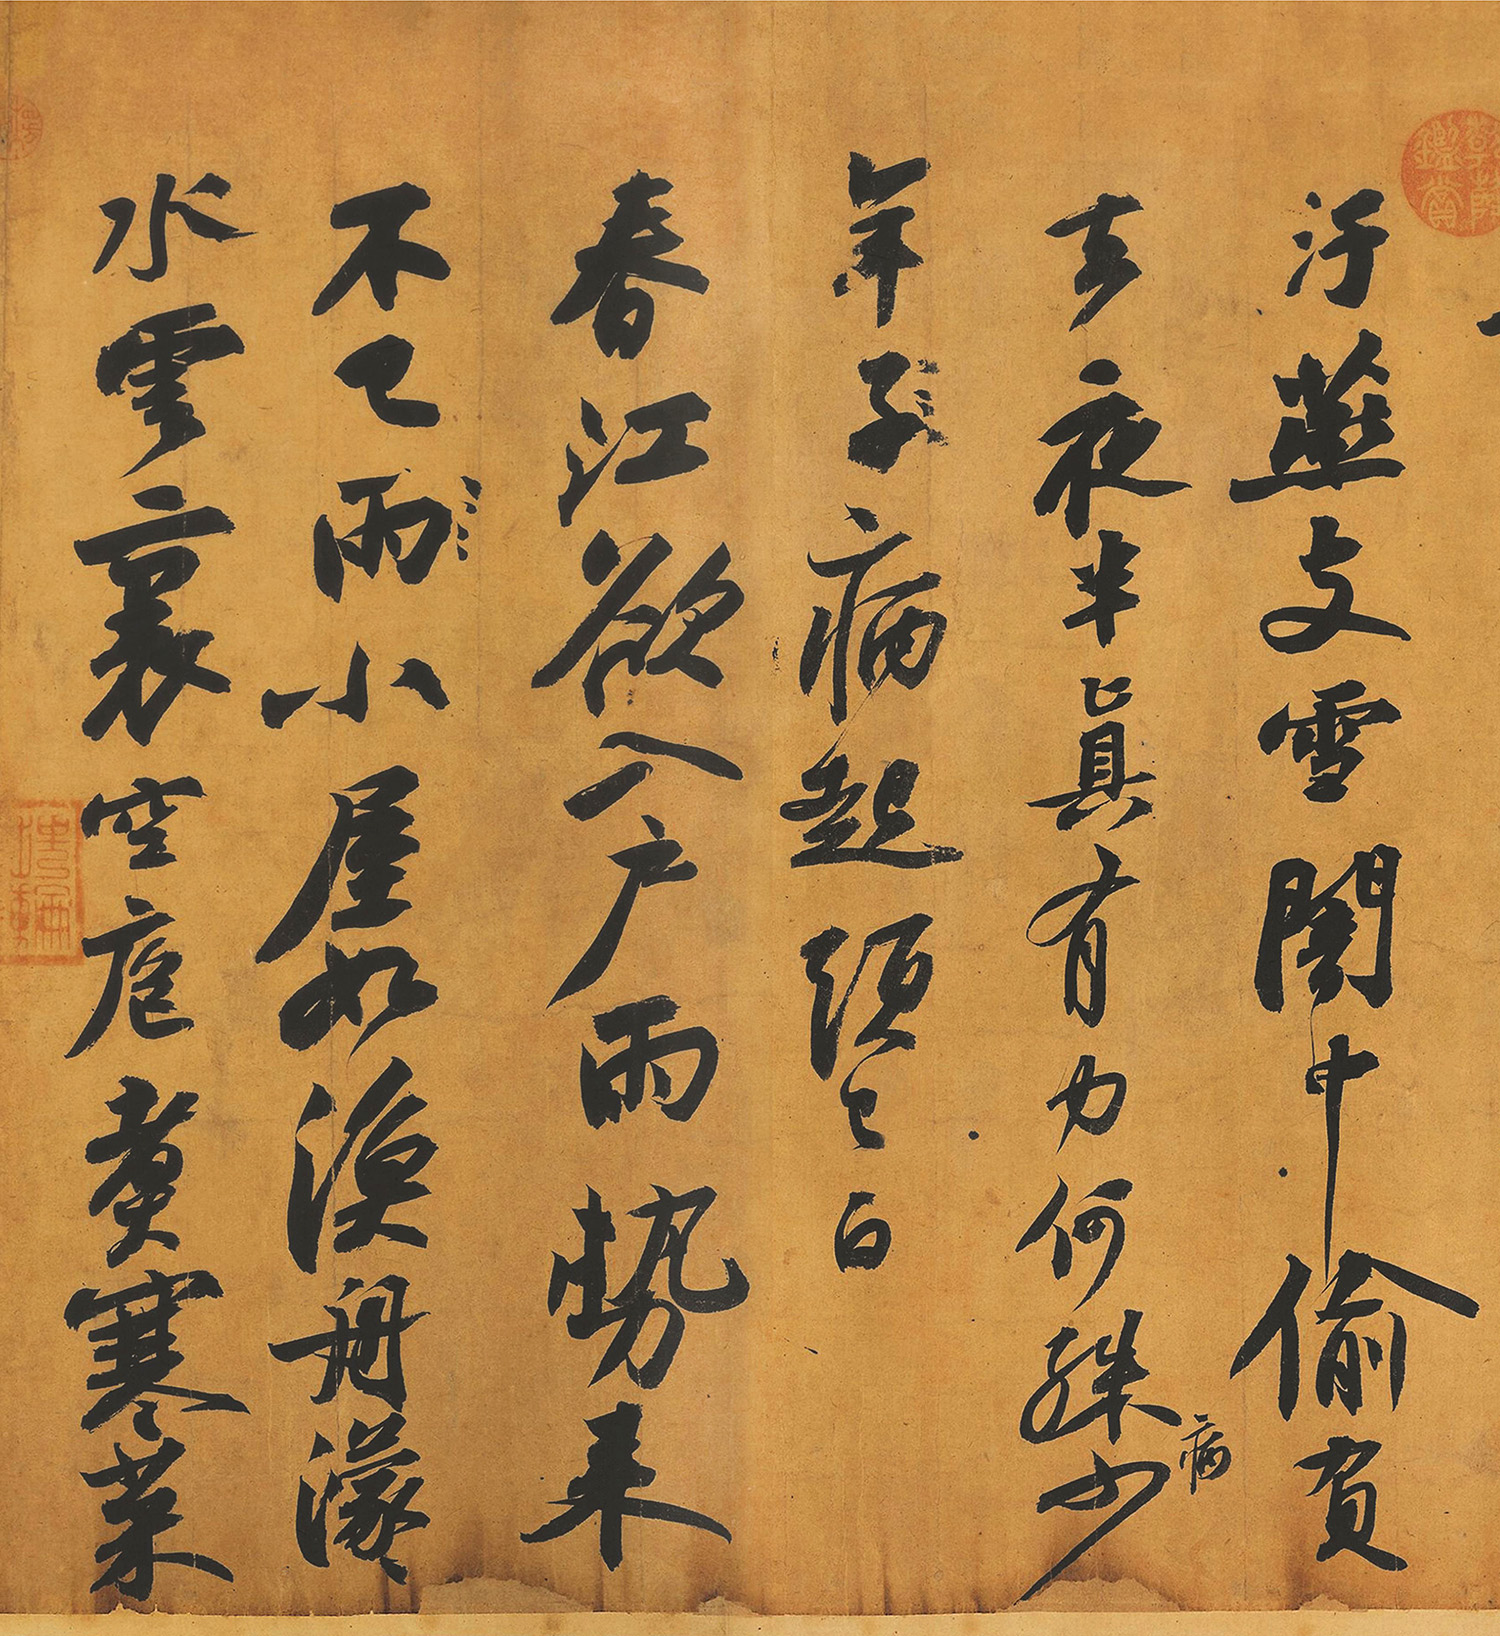 汙燕支雪闇中偷負
去夜半真有力何殊少
病
年子病起頭已白
春江欲入戶雨勢來
不已雨小屋如漁舟濛
水雲裏空庖煮寒菜